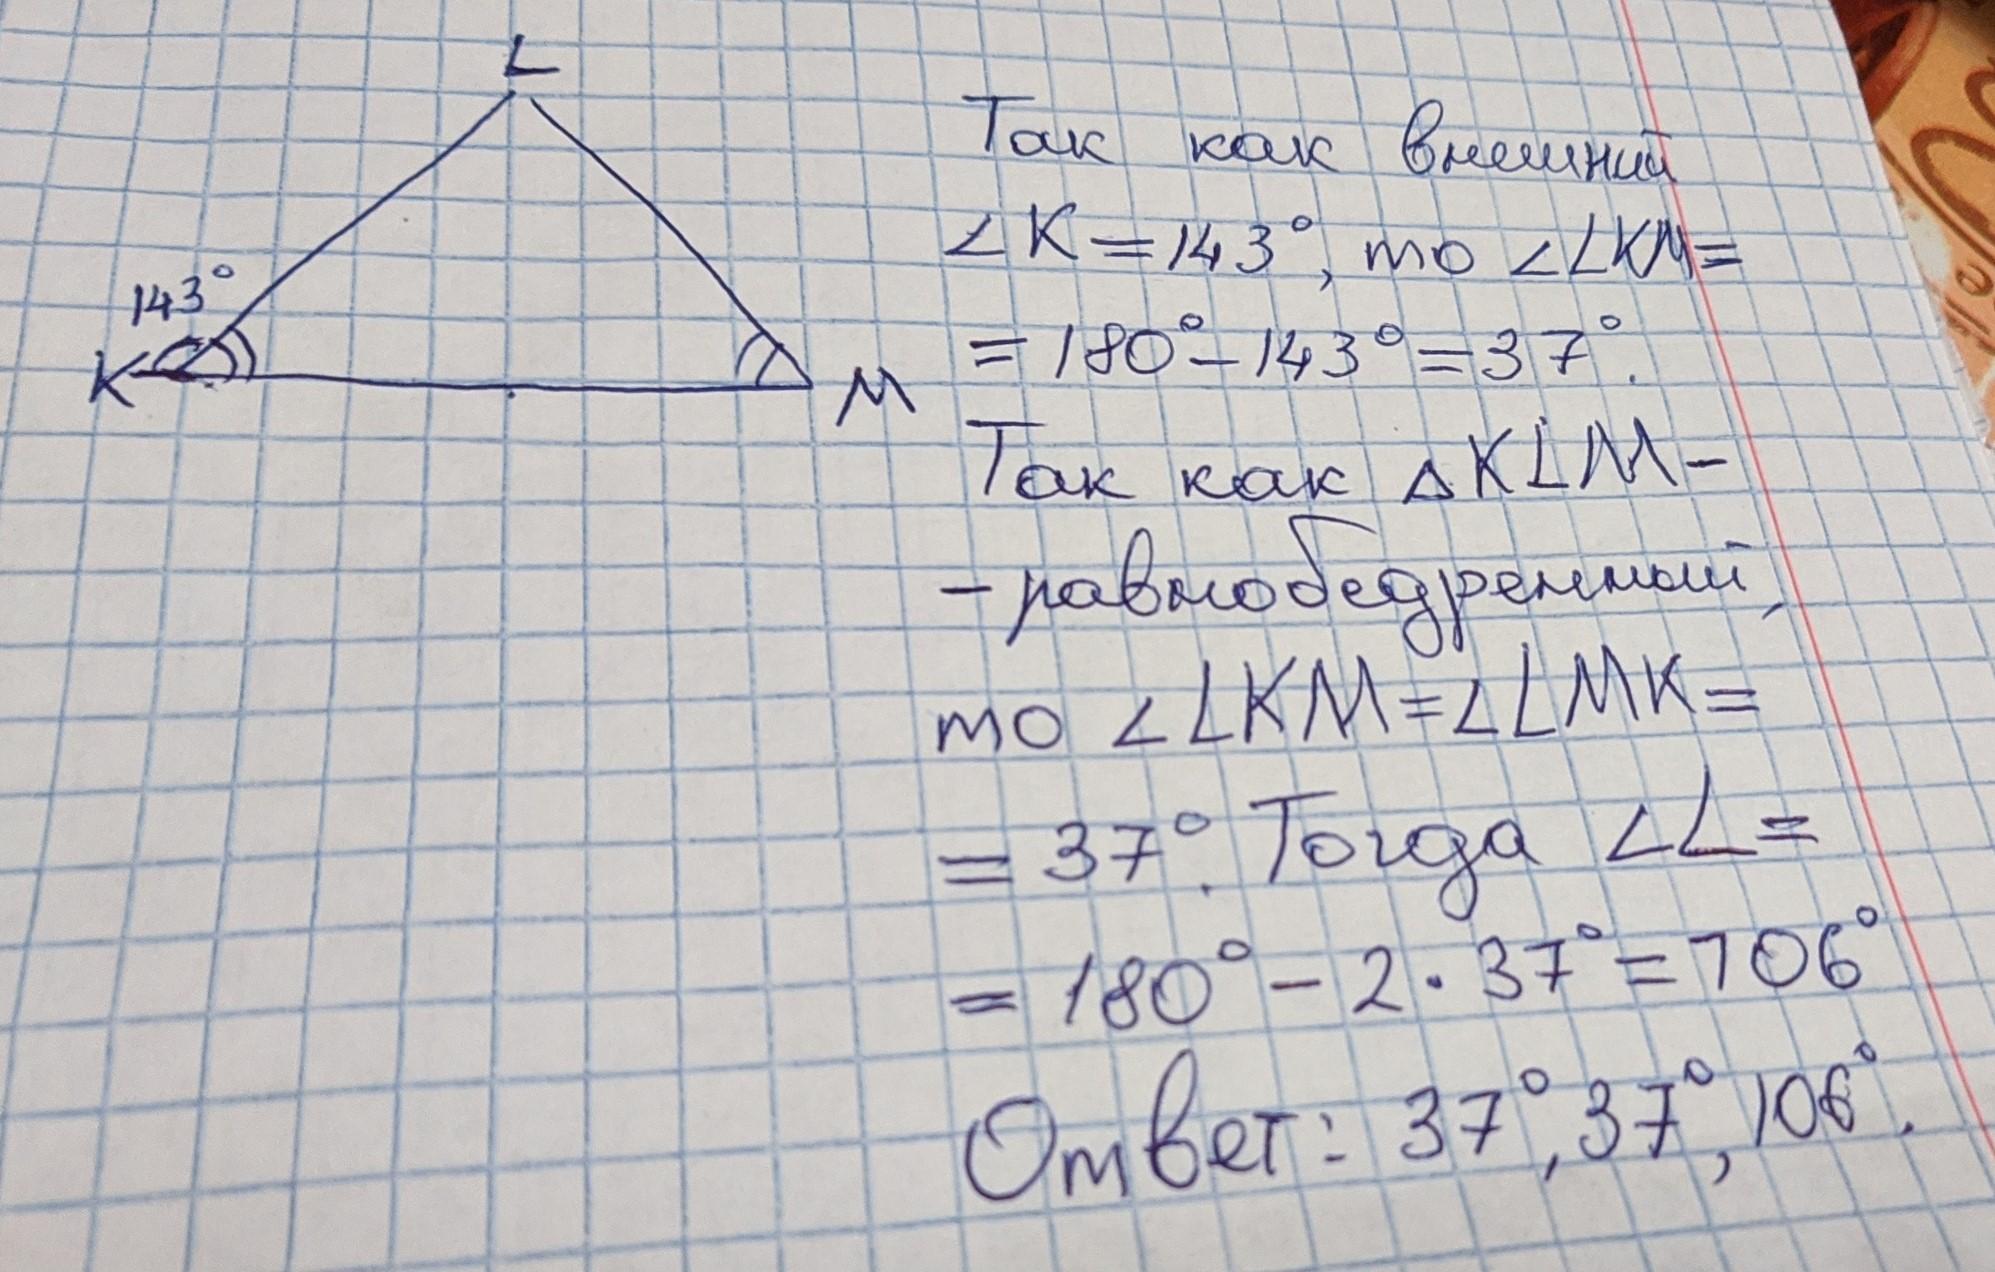 L
143°
K
M
Так как внешний
∠K=143°, то ∠LKM=
=180°-143°=37°.
Так как △KLM-
-равнобедренный,
то ∠LKM=∠LMK=
=37°. Тогда ∠L=
=180°-2·37°=106°
Ответ: 37°, 37°, 106°.